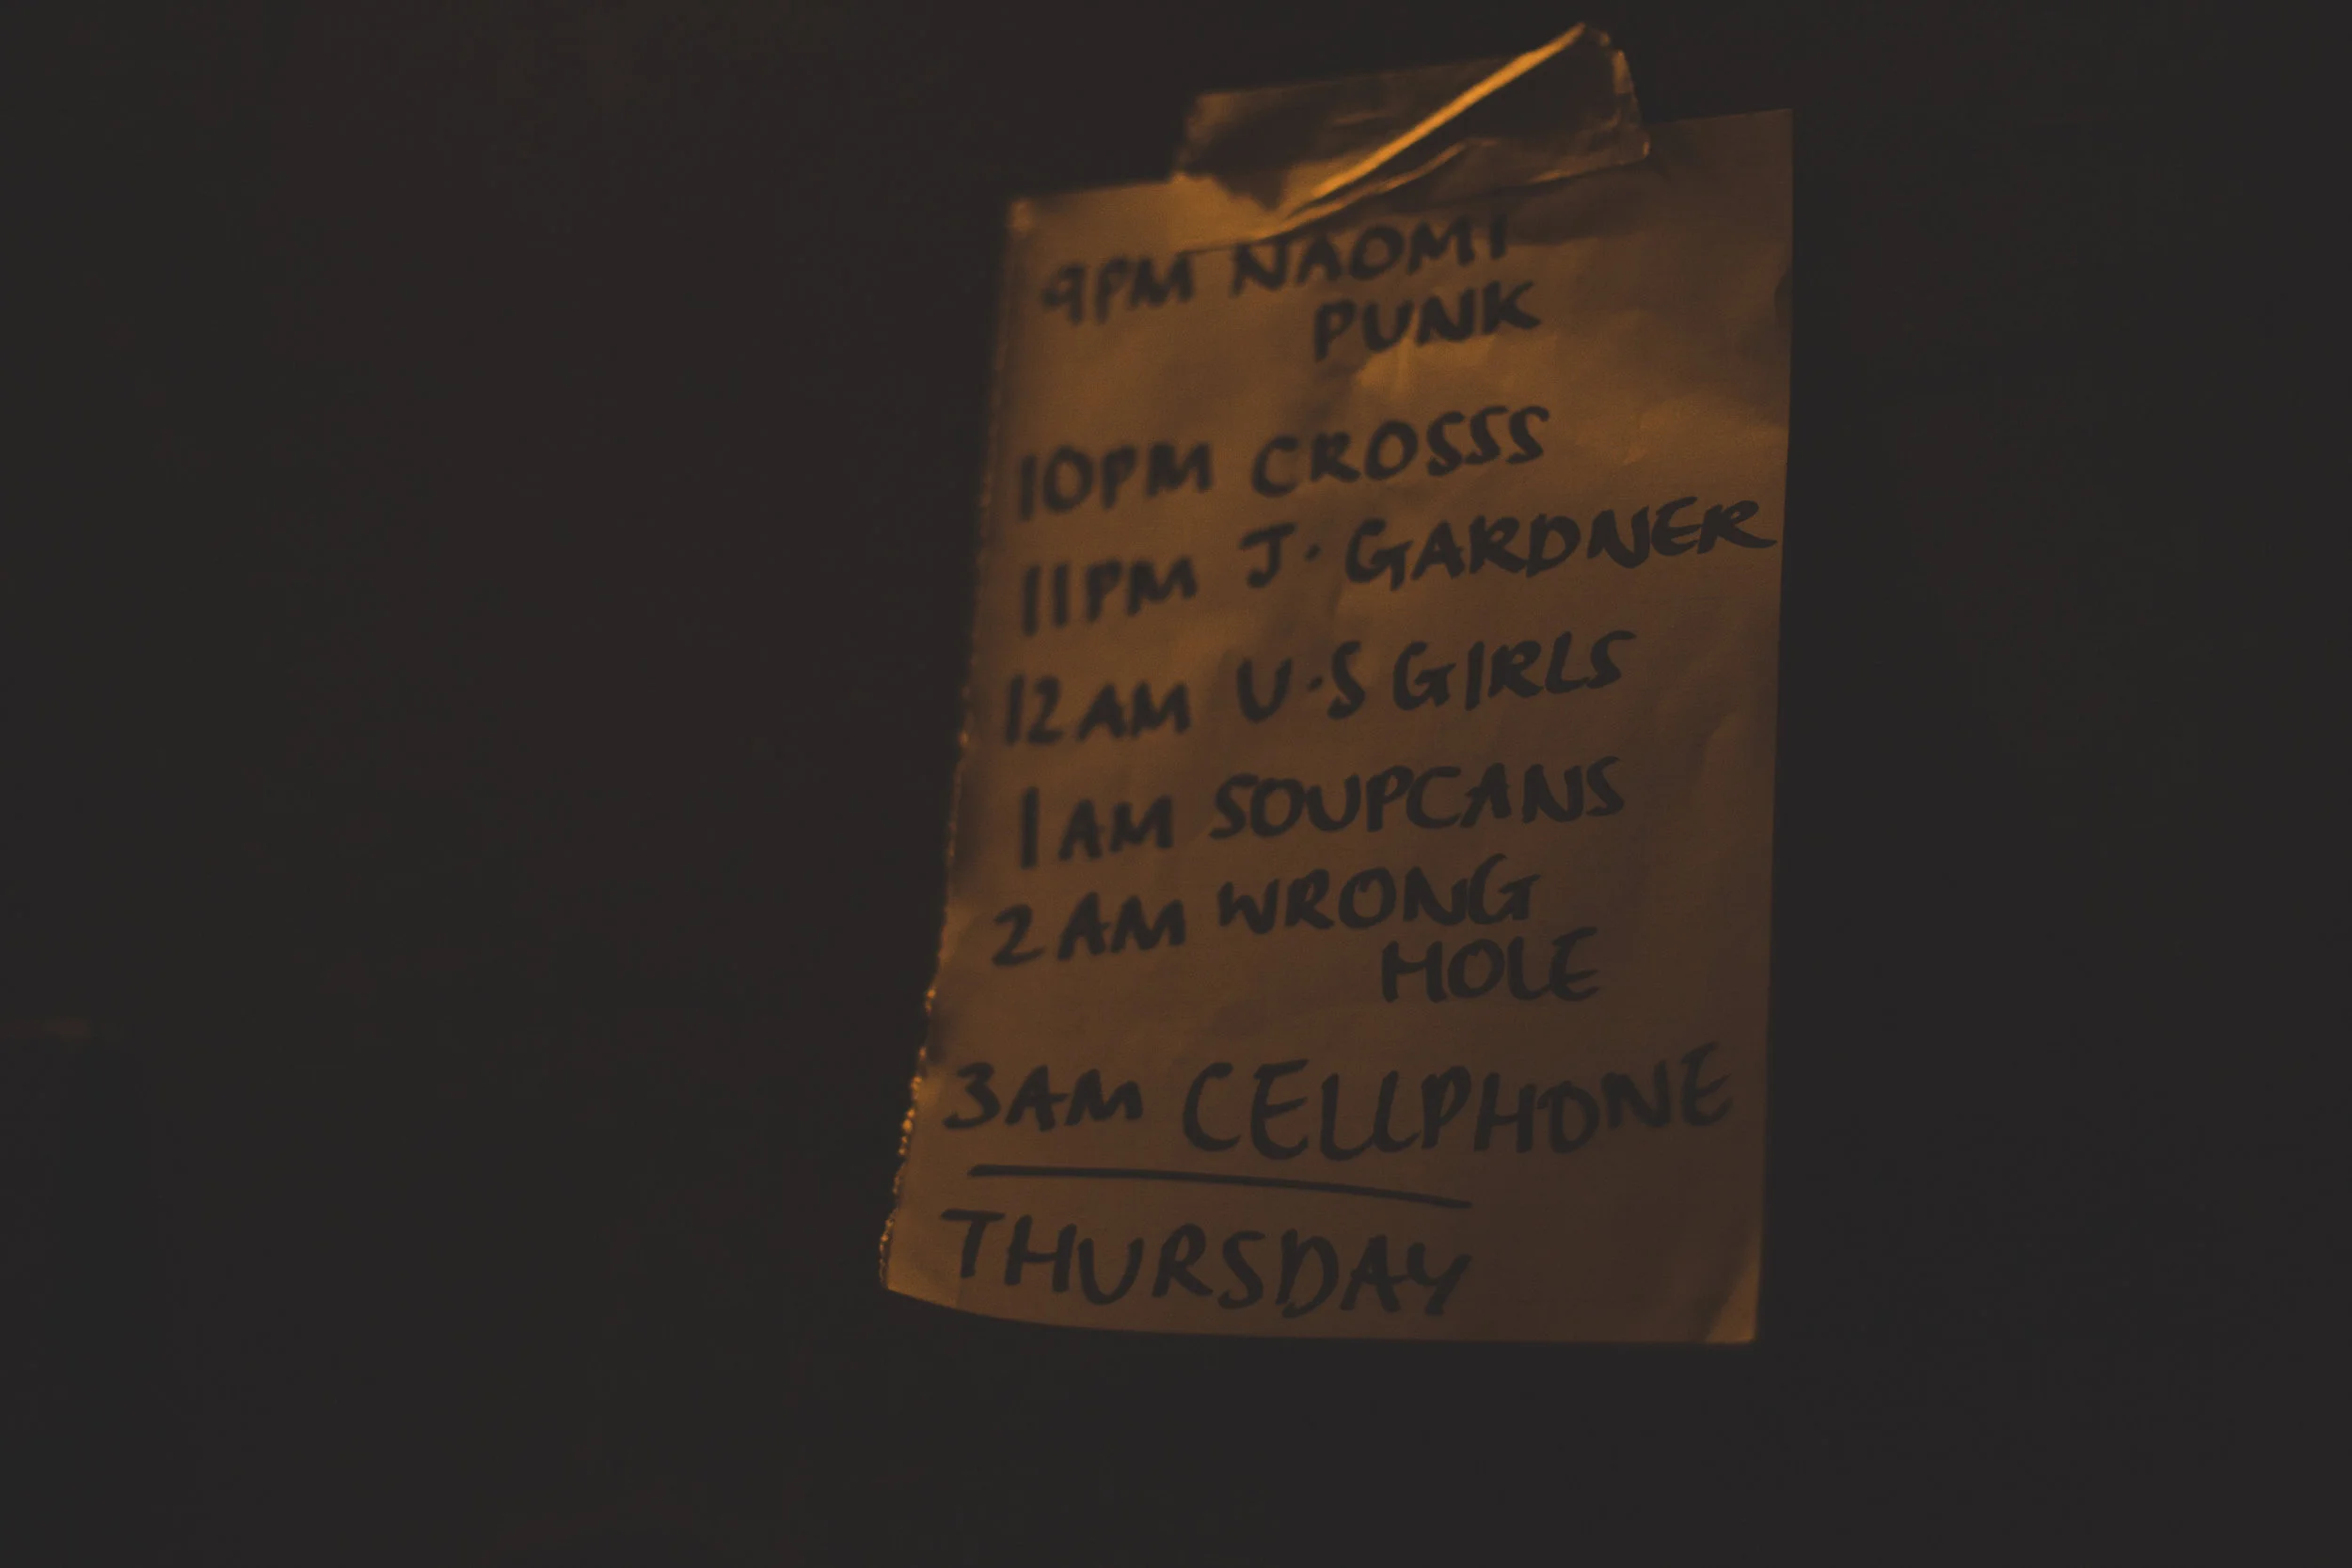 9PM NAOMI
PUNK
10PM CROSSS
11PM J. GARDNER
12AM U.S GIRLS
1AM SOUPCANS
2AM WRONG
HOLE
3AM CELLPHONE
THURSDAY